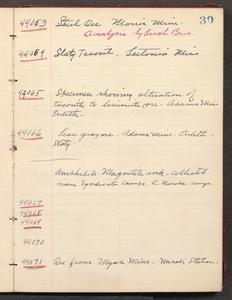 39
44053 Steel Ore Morris Mine.
Analyses by Lerch Bros.
44054 Slaty Taconite. Mine
44065 Specimen showing alteration of
taconite to limonite ore. Adams Mine
Eveleth.
44066 Lean gray ore. Adams Mine. Eveleth.
Slaty
Amphibole Magnetite rock. collected
near Syndicate Camp. E. Mesabi range
44067
44068
44069
44070
44071 Ore from Mine. Station.